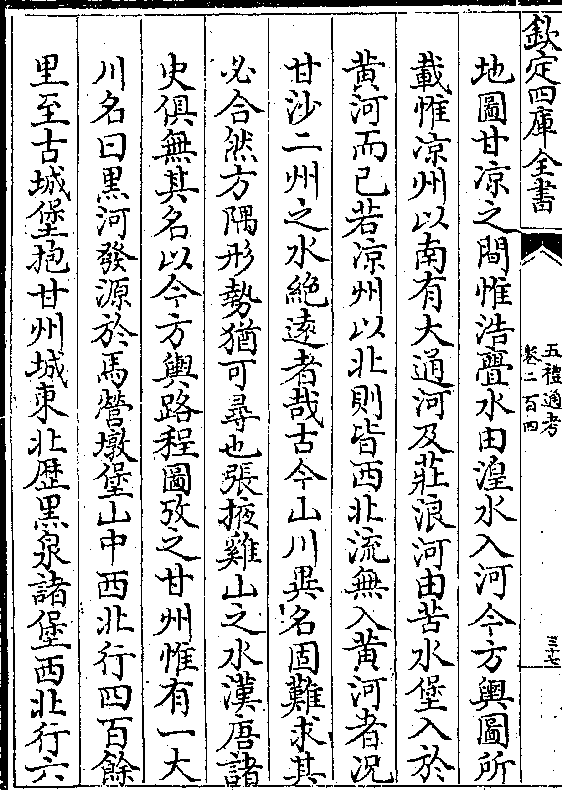 欽定四庫全書
五禮通考
卷二百四
三十七
地圖甘凉之間惟浩亹水由湟水入河今方輿圖所
載惟凉州以南有大通河及莊浪河由苦水堡入於
黄河而已若凉州以北則皆西北流無入黄河者况
甘沙二州之水絶逺者哉古今山川異名固難求其
必合然方隅形勢猶可尋也張掖雞山之水漢唐諸
史俱無其名以今方輿路程圖攷之甘州惟有一大
川名曰黒河發源於馬營墩堡山中西北行四百餘
里至古城堡抱甘州城東北歴黒泉諸堡西北行六